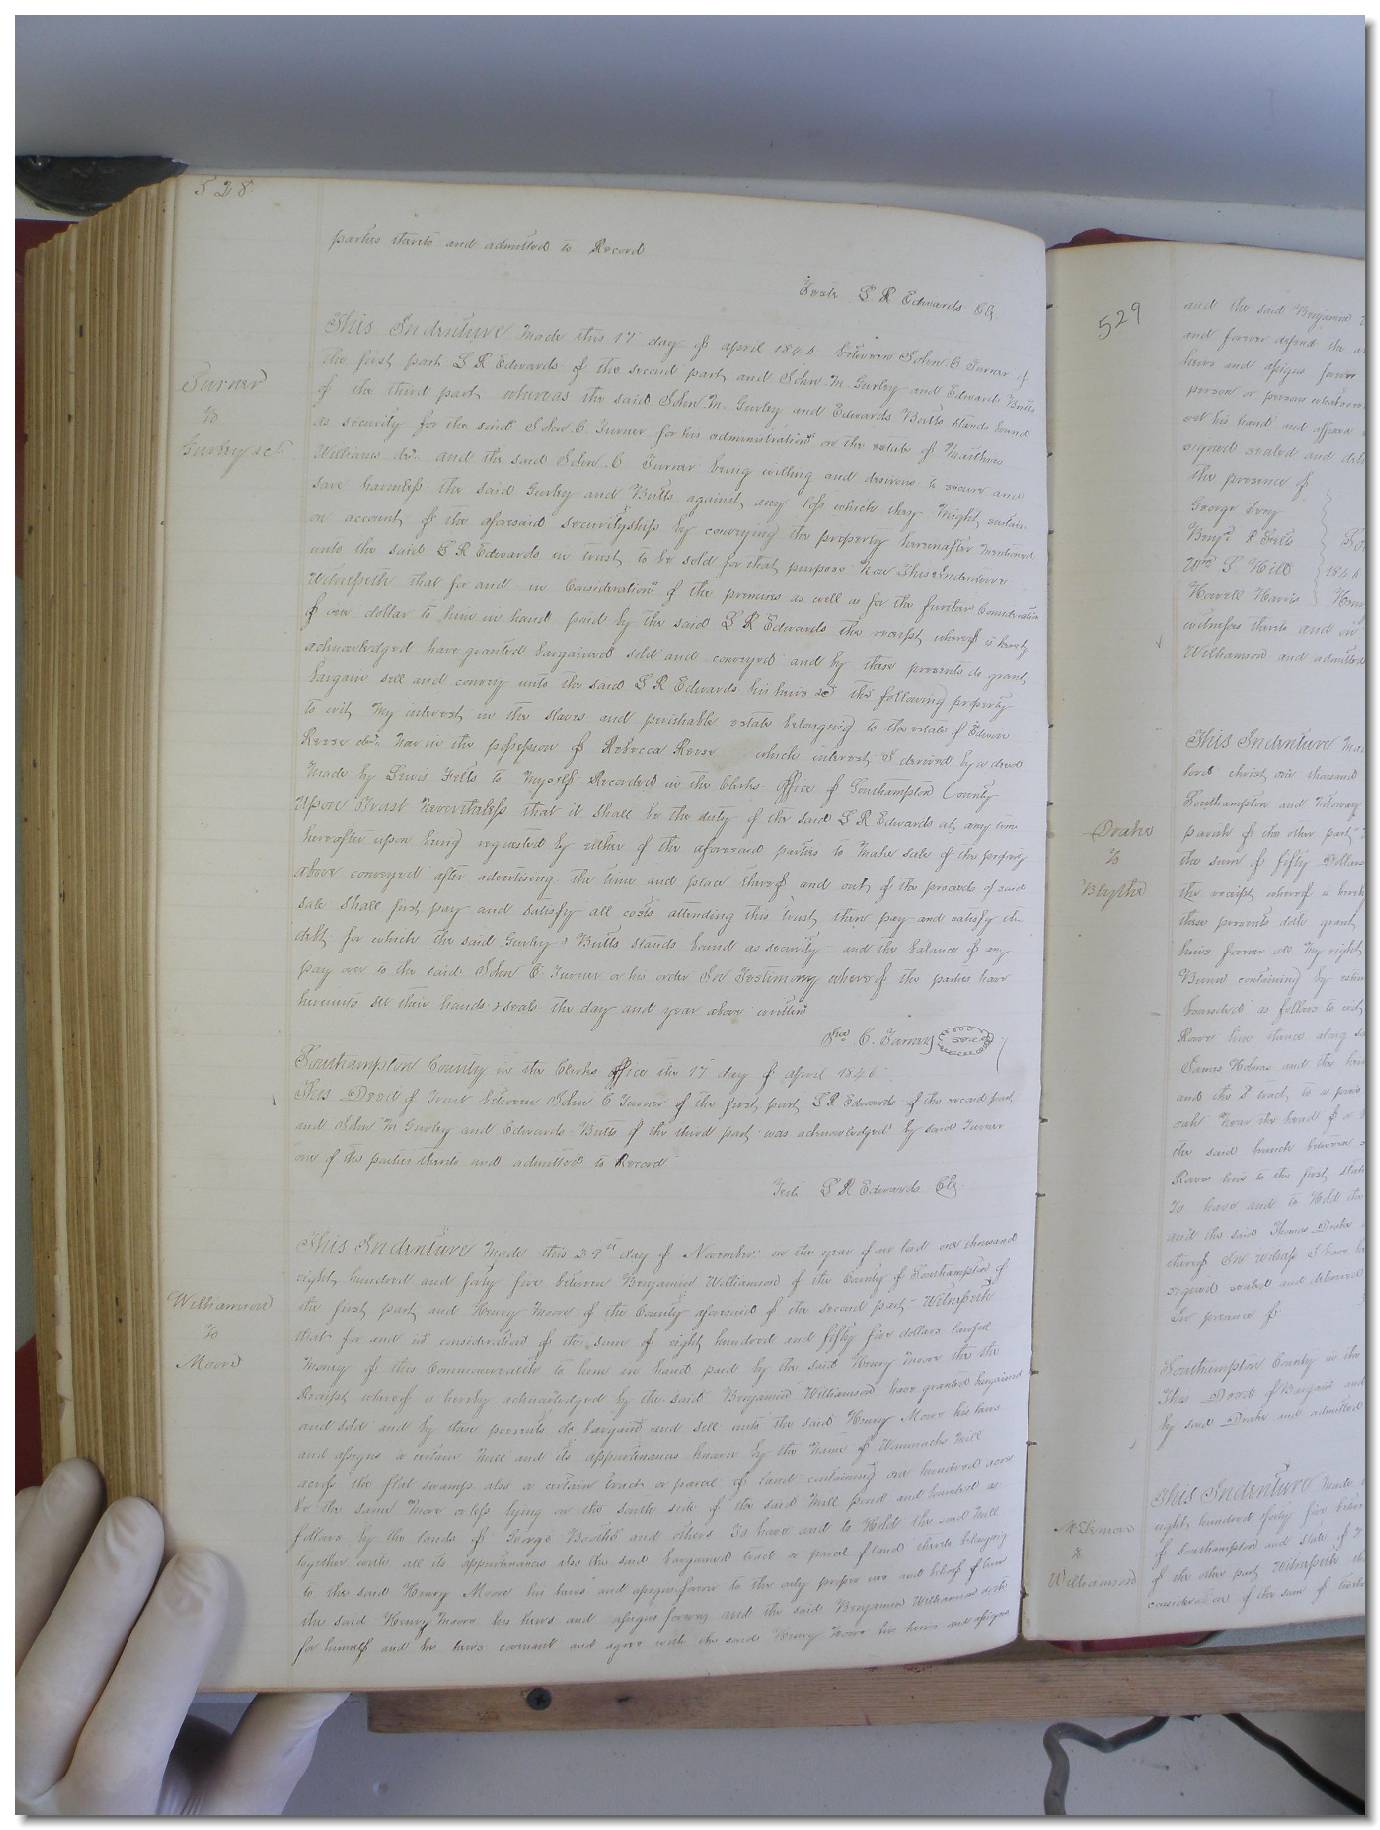 528
parties thereto and admitted to Record
Teste L R Edwards Clk
Turner
to
Gurley &c
This Indenture made this 17 day of april 1846 between John C Turner of
the first part L R Edwards of the second part and John M. Gurley and Edwards Butts
of the third part whereas the said John M. Gurley and Edwards Butts stands bound
as security for the said John C Turner for his administration on the estate of Matthew
Williams decd. and the said John C Turner being willing and desirous to secure and
save harmless the said Gurley and Butts against any loss which they might sustain
on account of the aforesaid securityship by conveying the property hereinafter mentioned
unto the said L R Edwards in trust to be sold for that purpose Now This Indenture
Witnesseth that for and in Consideration of the premises as well as for the further Consideration
of one dollar to him in hand paid by the said L R Edwards the receipt whereof is hereby
acknowledged have granted bargained sold and conveyed and by these presents do grant
bargain sell and convey unto the said L R Edwards his heirs &c the following property
to wit, My interest in the slaves and perishable estate belonging to the estate of Edwin
Reese decd. Now in the possession of Rebecca Reese which interest I derived by a deed
made by Lewis Felts to myself Recorded in the Clerks Office of Southampton County
Upon Trust Nevertheless that it shall be the duty of the said L R Edwards at any time
hereafter upon being requested by either of the aforesaid parties to make sale of the property
above conveyed after advertising the time and place thereof and out of the proceeds of said
sale shall first pay and satisfy all costs attending this trust, then pay and satisfy the
debt for which the said Gurley & Butts stands bound as security and the balance if any
pay over to the said John C. Turner or his order In Testimony whereof the parties have
hereunto set their hands & seals the day and year above written
Jno. C. Turner seal
Southampton County in the Clerks Office the 17 day of april 1846
This Deed of Trust between John C Turner of the first part, L R Edwards of the second part
and John M Gurley and Edwards Butts of the third part was acknowledged by said Turner
one of the parties thereto and admitted to Record
Teste L R Edwards Clk
Williamson
to
Moore
This Indenture made this day of November in the year of our lord one thousand
eight hundred and forty five between Benjamin Williamson of the County of Southampton of
the first part and Henry Moore of the County aforesaid of the second part Witnesseth
that for and in consideration of the sum of eight hundred and fifty five dollars lawful
money of this Commonwealth to him in hand paid by the said Henry Moore the the
Receipt whereof is hereby acknowledged by the said Benjamin Williamson have granted bargained
and sold and by these presents do bargain and sell unto the said Henry Moore his heirs
and assigns a certain mill and its appurtenances known by the name of Mill
across the flat swamp also a certain tract or parcel of land containing one hundred acres
be the same more or less lying on the south side of the said mill pond and bounded as
follows by the lands of George and others To have and to Hold the said mill
together with all its appurtenances also the said bargained tract or parcel of land thereto belonging
to the said Henry Moore his heirs and assigns forever to the only proper use and behoof of him
the said Henry Moore his heirs and assigns forever and the said Benjamin Williamson doth
for himself and his heirs covenant and agree with the said Henry Moore his heirs and assigns
529
and the said Benjamin
and forever defend the
heirs and assigns forever
person or persons whatsoever
set his hand and affixed
signed sealed and
the presence of
George
Benj. Felts
Wm S Hill 1846
Howell Harris
witnesses thereto and on
Williamson and admitted
Drake
to
Blythe
This Indenture
lord christ one thousand
Southampton and
parish of the other part
the sum of fifty Dollars
the receipt whereof is
these presents doth grant
heirs forever all my right
containing by
bounded as follows to wit
line thence along
James Holmes and the
and the tract to a
oak Near the head of a
the said branch between
line to the first
To have and to Hold the
and the said Thomas Drake
thereof In witness I have
signed sealed and delivered
In presence of
Southampton County in the
This Deed of Bargain and
by said Drake and admitted
to
Williamson
This Indenture made
eight hundred forty five between
of Southampton and State of
of the other part Witnesseth
consideration of the sum of